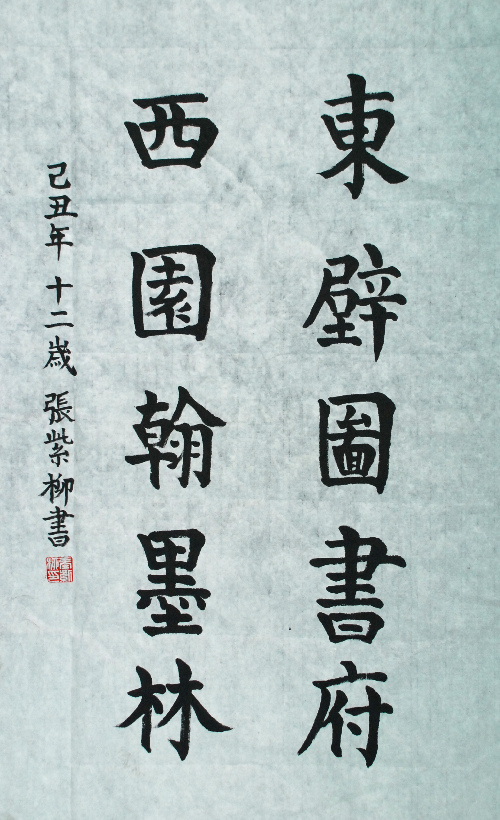 東壁圖書府
西園翰墨林
己丑年 十二歲 張紫柳書